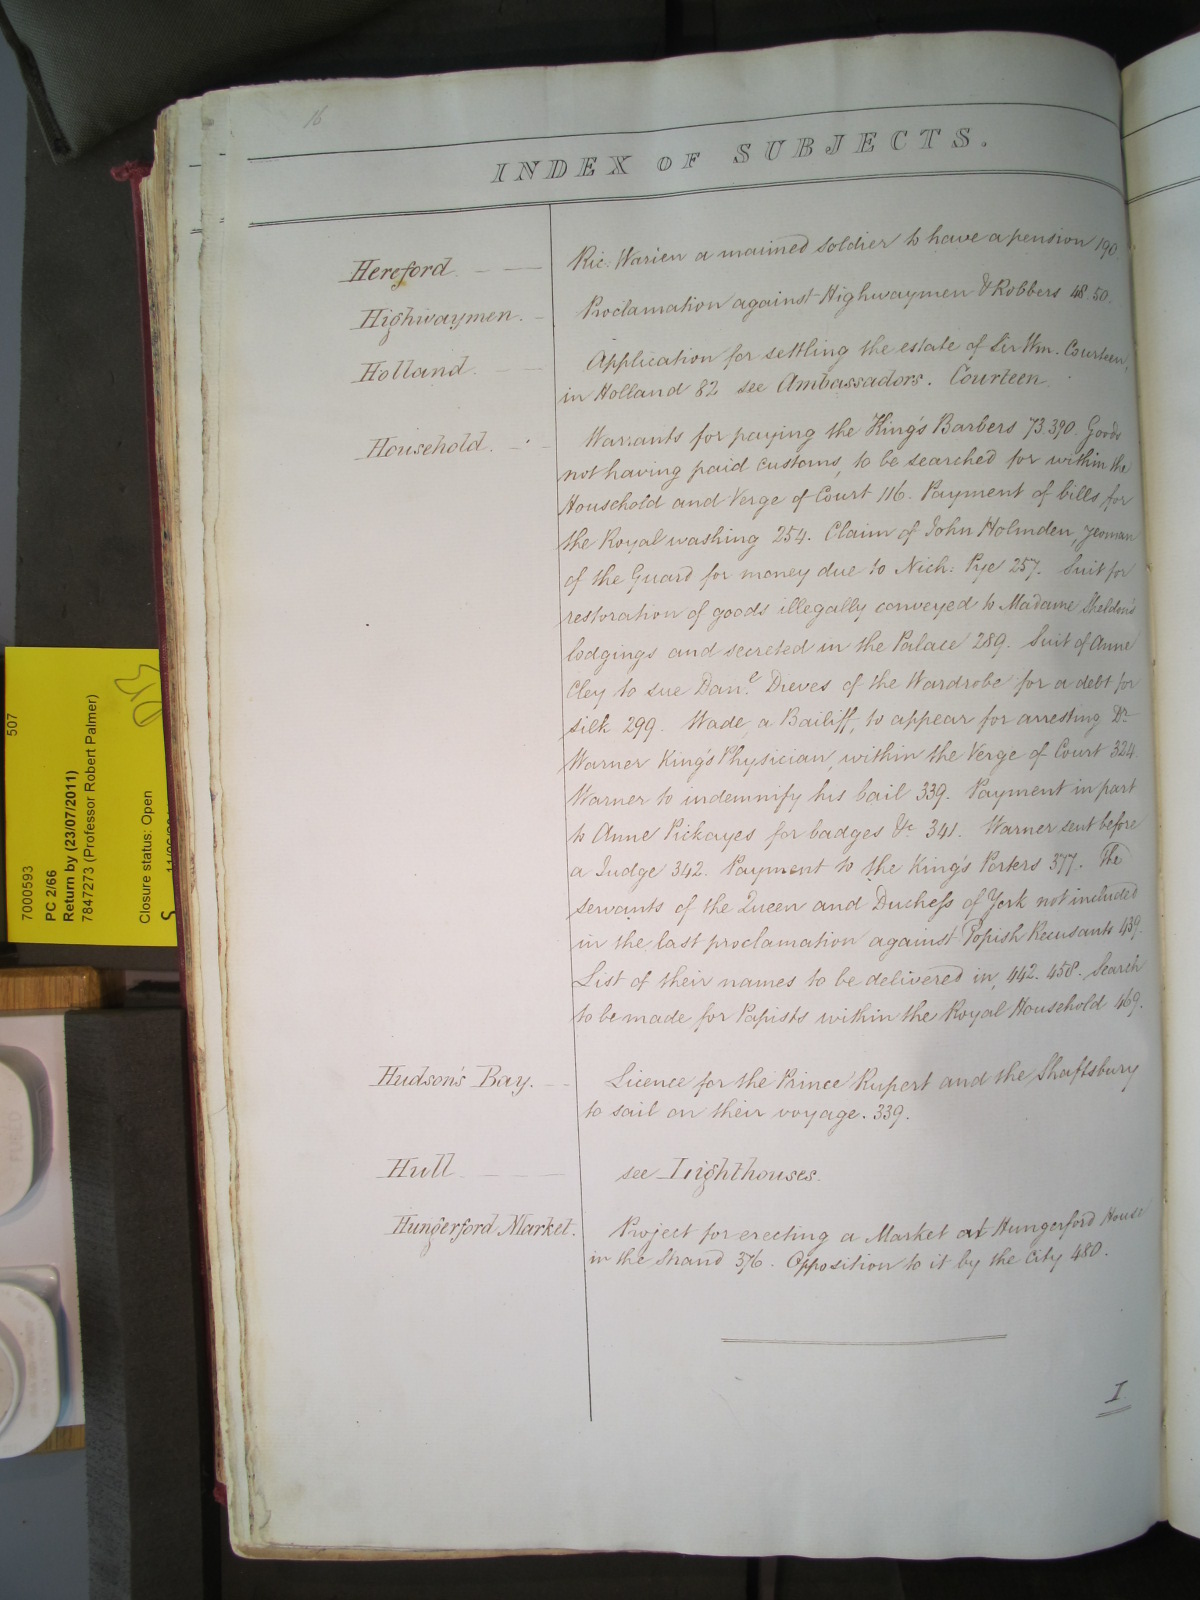 16
INDEX OF SUBJECTS.
Hereford. Ric: Warien a maimed soldier to have a pension 190.
Highwaymen. Proclamation against Highwaymen & Robbers 48.50.
Holland. Application for settling the estate of Sir Wm. Courteen,
in Holland 82 see Ambassadors. Courteen.
Household. Warrants for paying the King's Barbers 73.390. Goods
not having paid customs, to be searched for within the
Household and Verge of Court 116. Payment of bills for
the Royal washing 254. Claim of John Holmden, yeoman
of the Guard for money due to Nich: Pye 257. Suit for
restoration of goods illegally conveyed to Madame Sheldon's
lodgings and secreted in the Palace 289. Suit of Anne
Cley to sue Danl. Dieves of the Wardrobe for a debt for
silk 299. Wade, a Bailiff, to appear for arresting Dr.
Warner King's Physician, within the Verge of Court 324.
Warner to indemnify his bail 339. Payment in part
to Anne Pickayes for badges &c 341. Warner sent before
a Judge 342. Payment to the King's Porters 377. The
servants of the Queen and Duchess of York not included
in the last proclamation against Popish Recusants 439.
List of their names to be delivered in, 442. 458. Search
to be made for Papists within the Royal Household 469.
Hudson's Bay. Licence for the Prince Rupert and the Shaftsbury
to sail on their voyage. 339.
Hull see Lighthouses.
Hungerford Market. Project for erecting a Market at Hungerford House
in the Strand 376. Opposition to it by the City 480.
I
507
7000593
PC 2/66
Return by (23/07/2011)
7847273 (Professor Robert Palmer)
Closure status: Open